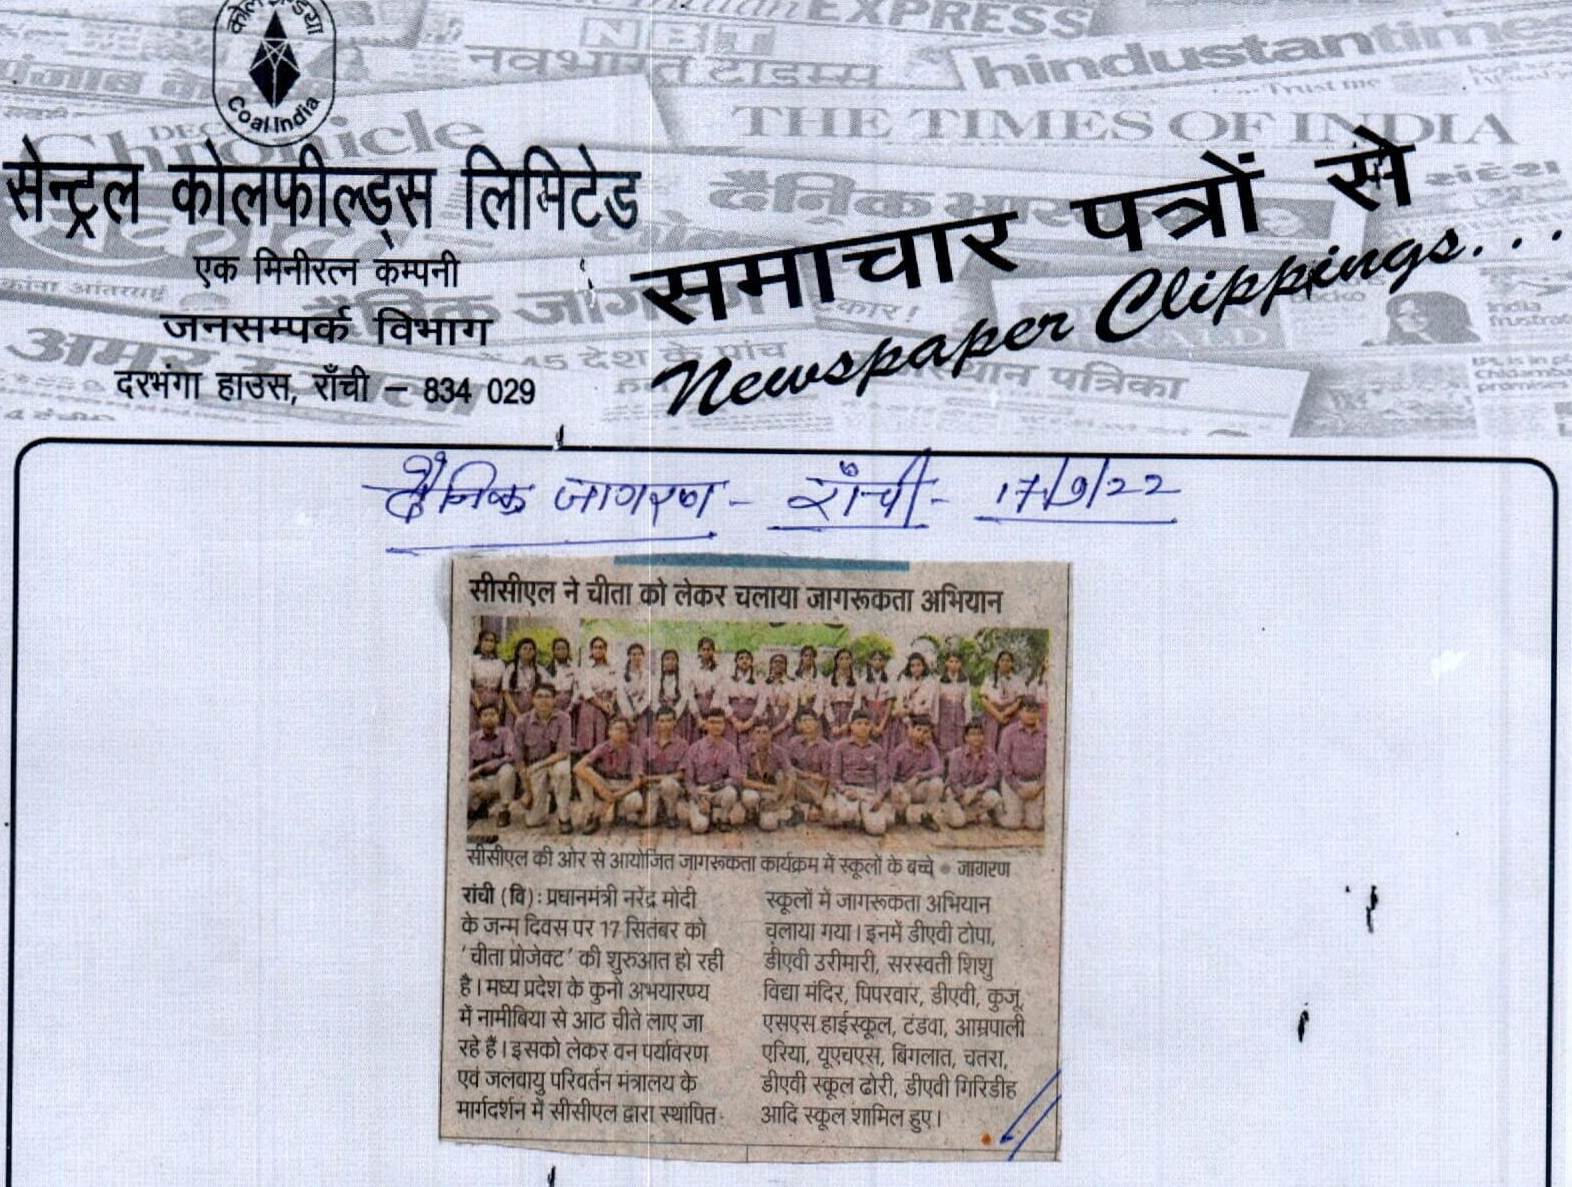 कोल इण्डिया
Coal India
The Indian EXPRESS
NBT
नवभारत टाइम्स
hindustantimes
Chronicle
THE TIMES OF INDIA
सेन्ट्रल कोलफील्ड्स लिमिटेड
एक मिनीरत्न कम्पनी
जनसम्पर्क विभाग
दरभंगा हाउस, राँची – 834 029
समाचार पत्रों से
Newspaper Clippings...
दैनिक जागरण - राँची - 17/9/22
सीसीएल ने चीता को लेकर चलाया जागरूकता अभियान
सीसीएल की ओर से आयोजित जागरूकता कार्यक्रम में स्कूलों के बच्चे ● जागरण
रांची (वि): प्रधानमंत्री नरेंद्र मोदी
के जन्म दिवस पर 17 सितंबर को
'चीता प्रोजेक्ट' की शुरुआत हो रही
है। मध्य प्रदेश के कुनो अभयारण्य
में नामीबिया से आठ चीते लाए जा
रहे हैं। इसको लेकर वन पर्यावरण
एवं जलवायु परिवर्तन मंत्रालय के
मार्गदर्शन में सीसीएल द्वारा स्थापित
स्कूलों में जागरूकता अभियान
चलाया गया। इनमें डीएवी टोपा,
डीएवी उरीमारी, सरस्वती शिशु
विद्या मंदिर, पिपरवार, डीएवी, कुजू,
एसएस हाईस्कूल, टंडवा, आम्रपाली
एरिया, यूएचएस, बिंगलात, चतरा,
डीएवी स्कूल ढोरी, डीएवी गिरिडीह
आदि स्कूल शामिल हुए।